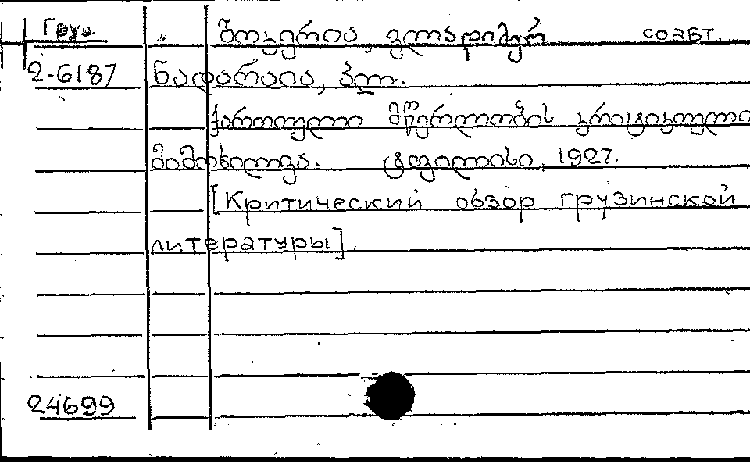 Груз. ვლადიმერ соавт.
2-6187 ნადარაია, პლ.
ქართული მწერლობის კრიტიკული
მიმოხილვა. ტფილისი, 1927.
[Критический обзор грузинской
литературы]
24699